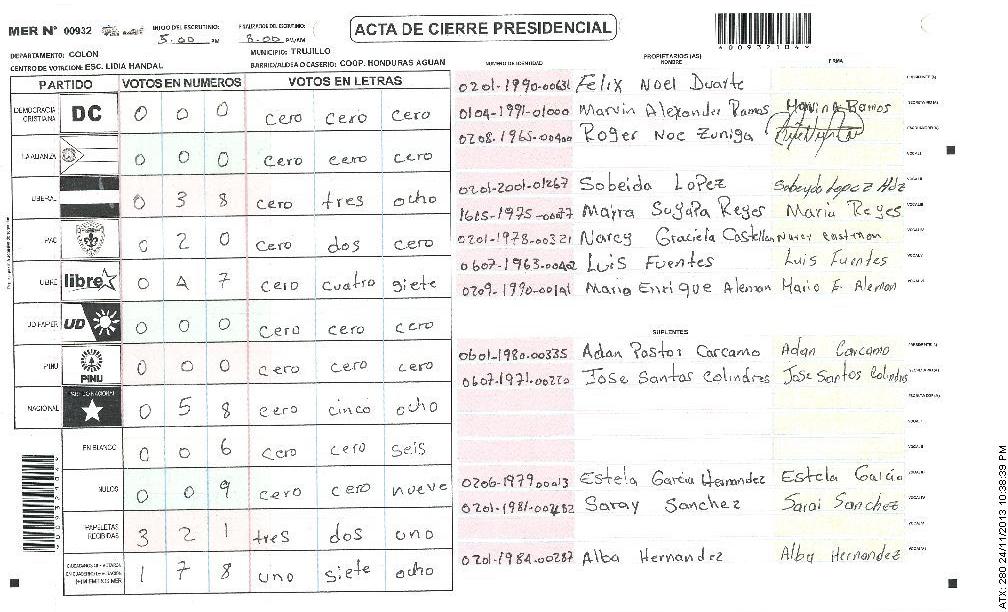 MER N° 00932
INICIO DEL ESCRUTINIO:
5.00 PM
FINALIZADOR DEL ESCRUTINIO:
8.00 PM/AM
ACTA DE CIERRE PRESIDENCIAL
DEPARTAMENTO: COLON
MUNICIPIO: TRUJILLO
CENTRO DE VOTACION: ESC. LIDIA HANDAL
BARRIO/ALDEA O CASERIO: COOP. HONDURAS AGUAN
PARTIDO VOTOS EN NUMEROS VOTOS EN LETRAS
DEMOCRACIA CRISTIANA DC 0 0 0 cero cero cero
LA ALIANZA 0 0 0 cero cero cero
LIBERAL 0 3 8 cero tres ocho
PAC 0 2 0 cero dos cero
LIBRE libre 0 4 7 cero cuatro siete
UD FAPER UD 0 0 0 cero cero cero
PINU PINU 0 0 0 cero cero cero
NACIONAL PARTIDO NACIONAL 0 5 8 cero cinco ocho
EN BLANCO 0 0 6 cero cero seis
NULOS 0 0 9 cero cero nueve
PAPELETAS RECIBIDAS 3 2 1 tres dos uno
1 7 8 uno siete ocho
NUMERO DE IDENTIDAD PROPIETARIOS (AS) NOMBRE FIRMA
0201-1990-00631 Felix Noel Duarte
0104-1991-01000 Marvin Alexander Ramos Marvin A Ramos
0208-1965-00400 Roger Noe Zuniga
0201-2001-01267 Sobeida Lopez Sobeyda Lopez Hdz
1605-1975-00077 Mayra Suyapa Reyes Maria Reyes
0201-1978-00321 Narcy Graciela Castellan
0607-1963-00402 Luis Fuentes Luis Fuentes
0209-1990-00191 Mario Enrique Aleman Mario E. Aleman
SUPLENTES
0601-1980-00335 Adan Pastor Carcamo Adan Carcamo
0607-1971-00220 Jose Santos Colindres Jose Santos Colindres
0206-1979-00013 Estela Garcia Hernandez Estela Galcia
0201-1981-00482 Saray Sanchez Sarai Sanchez
0201-1984-00287 Alba Hernandez Alba Hernandez
4009321044
ATX: 280 24/11/2013 10:38:39 PM